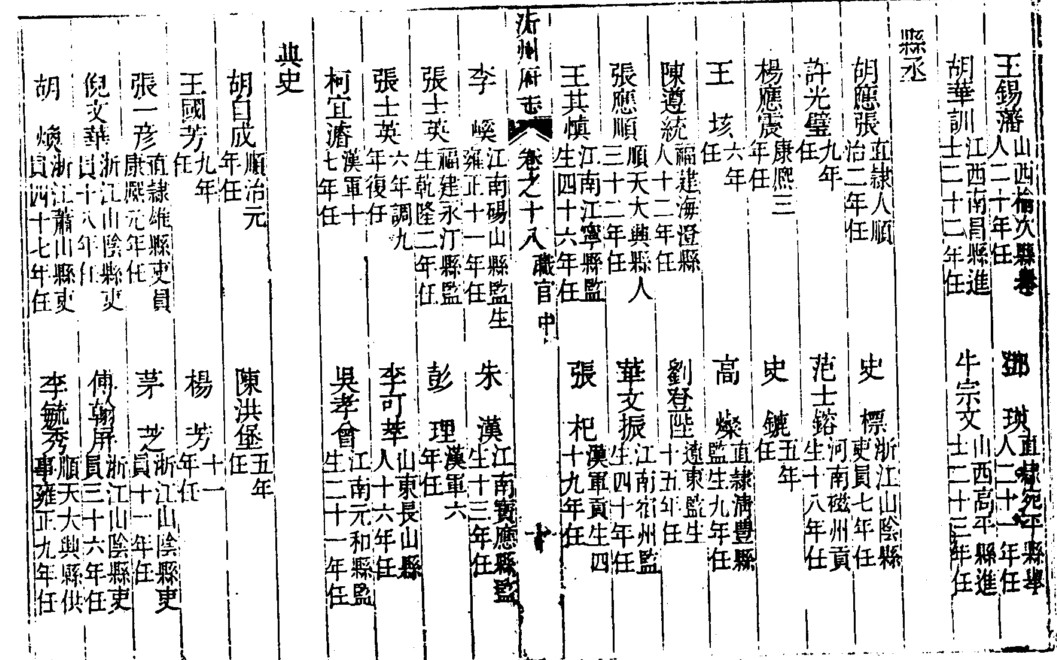 王錫藩山西榆次縣舉人二十年任 鄧 琪直隸宛平縣舉人二十一年任
胡華訓江西南昌縣進士二十二年任 牛宗文山西高平縣進士二十三年任
縣丞
胡應張直隸人順治二年任 史 標浙江山陰縣吏員七年任
許光璧九年任 范士鎔河南磁州貢生十八年任
楊應震康熙三年任 史 鏕五年任
王 垓六年任 高 燦直隸清豐縣監生九年任
陳遵統福建海澄縣人十二年任 劉登陛遼東監生十五年任
張應順順天大興縣人三十二年任 華文振江南宿州監生四十年任
王其慎江南江寧縣監生四十六年任 張 杞漢軍貢生四十九年任
沂州府志 卷之十八 職官中 十
李 嶫江南碭山縣監生雍正十一年任 朱 漢江南寶應縣監生十三年任
張士英福建永汀縣監生乾隆二年任 彭 理漢軍六年任
張士英六年調九年復任 李可莘山東長山縣人十六年任
柯宜濬漢軍十七年任 吳孝會江南元和縣監生二十一年任
典史
胡自成順治元年任 陳洪堡五年任
王國芳九年任 楊 芳十一年任
張一彥直隸雄縣吏員康熙元年任 茅 芝浙江山陰縣吏員十一年任
倪文華浙江山陰縣吏員十八年任 傅翰屏浙江山陰縣吏員三十六年任
胡 煥浙江蕭山縣吏員四十七年任 李毓秀順天大興縣供事雍正九年任